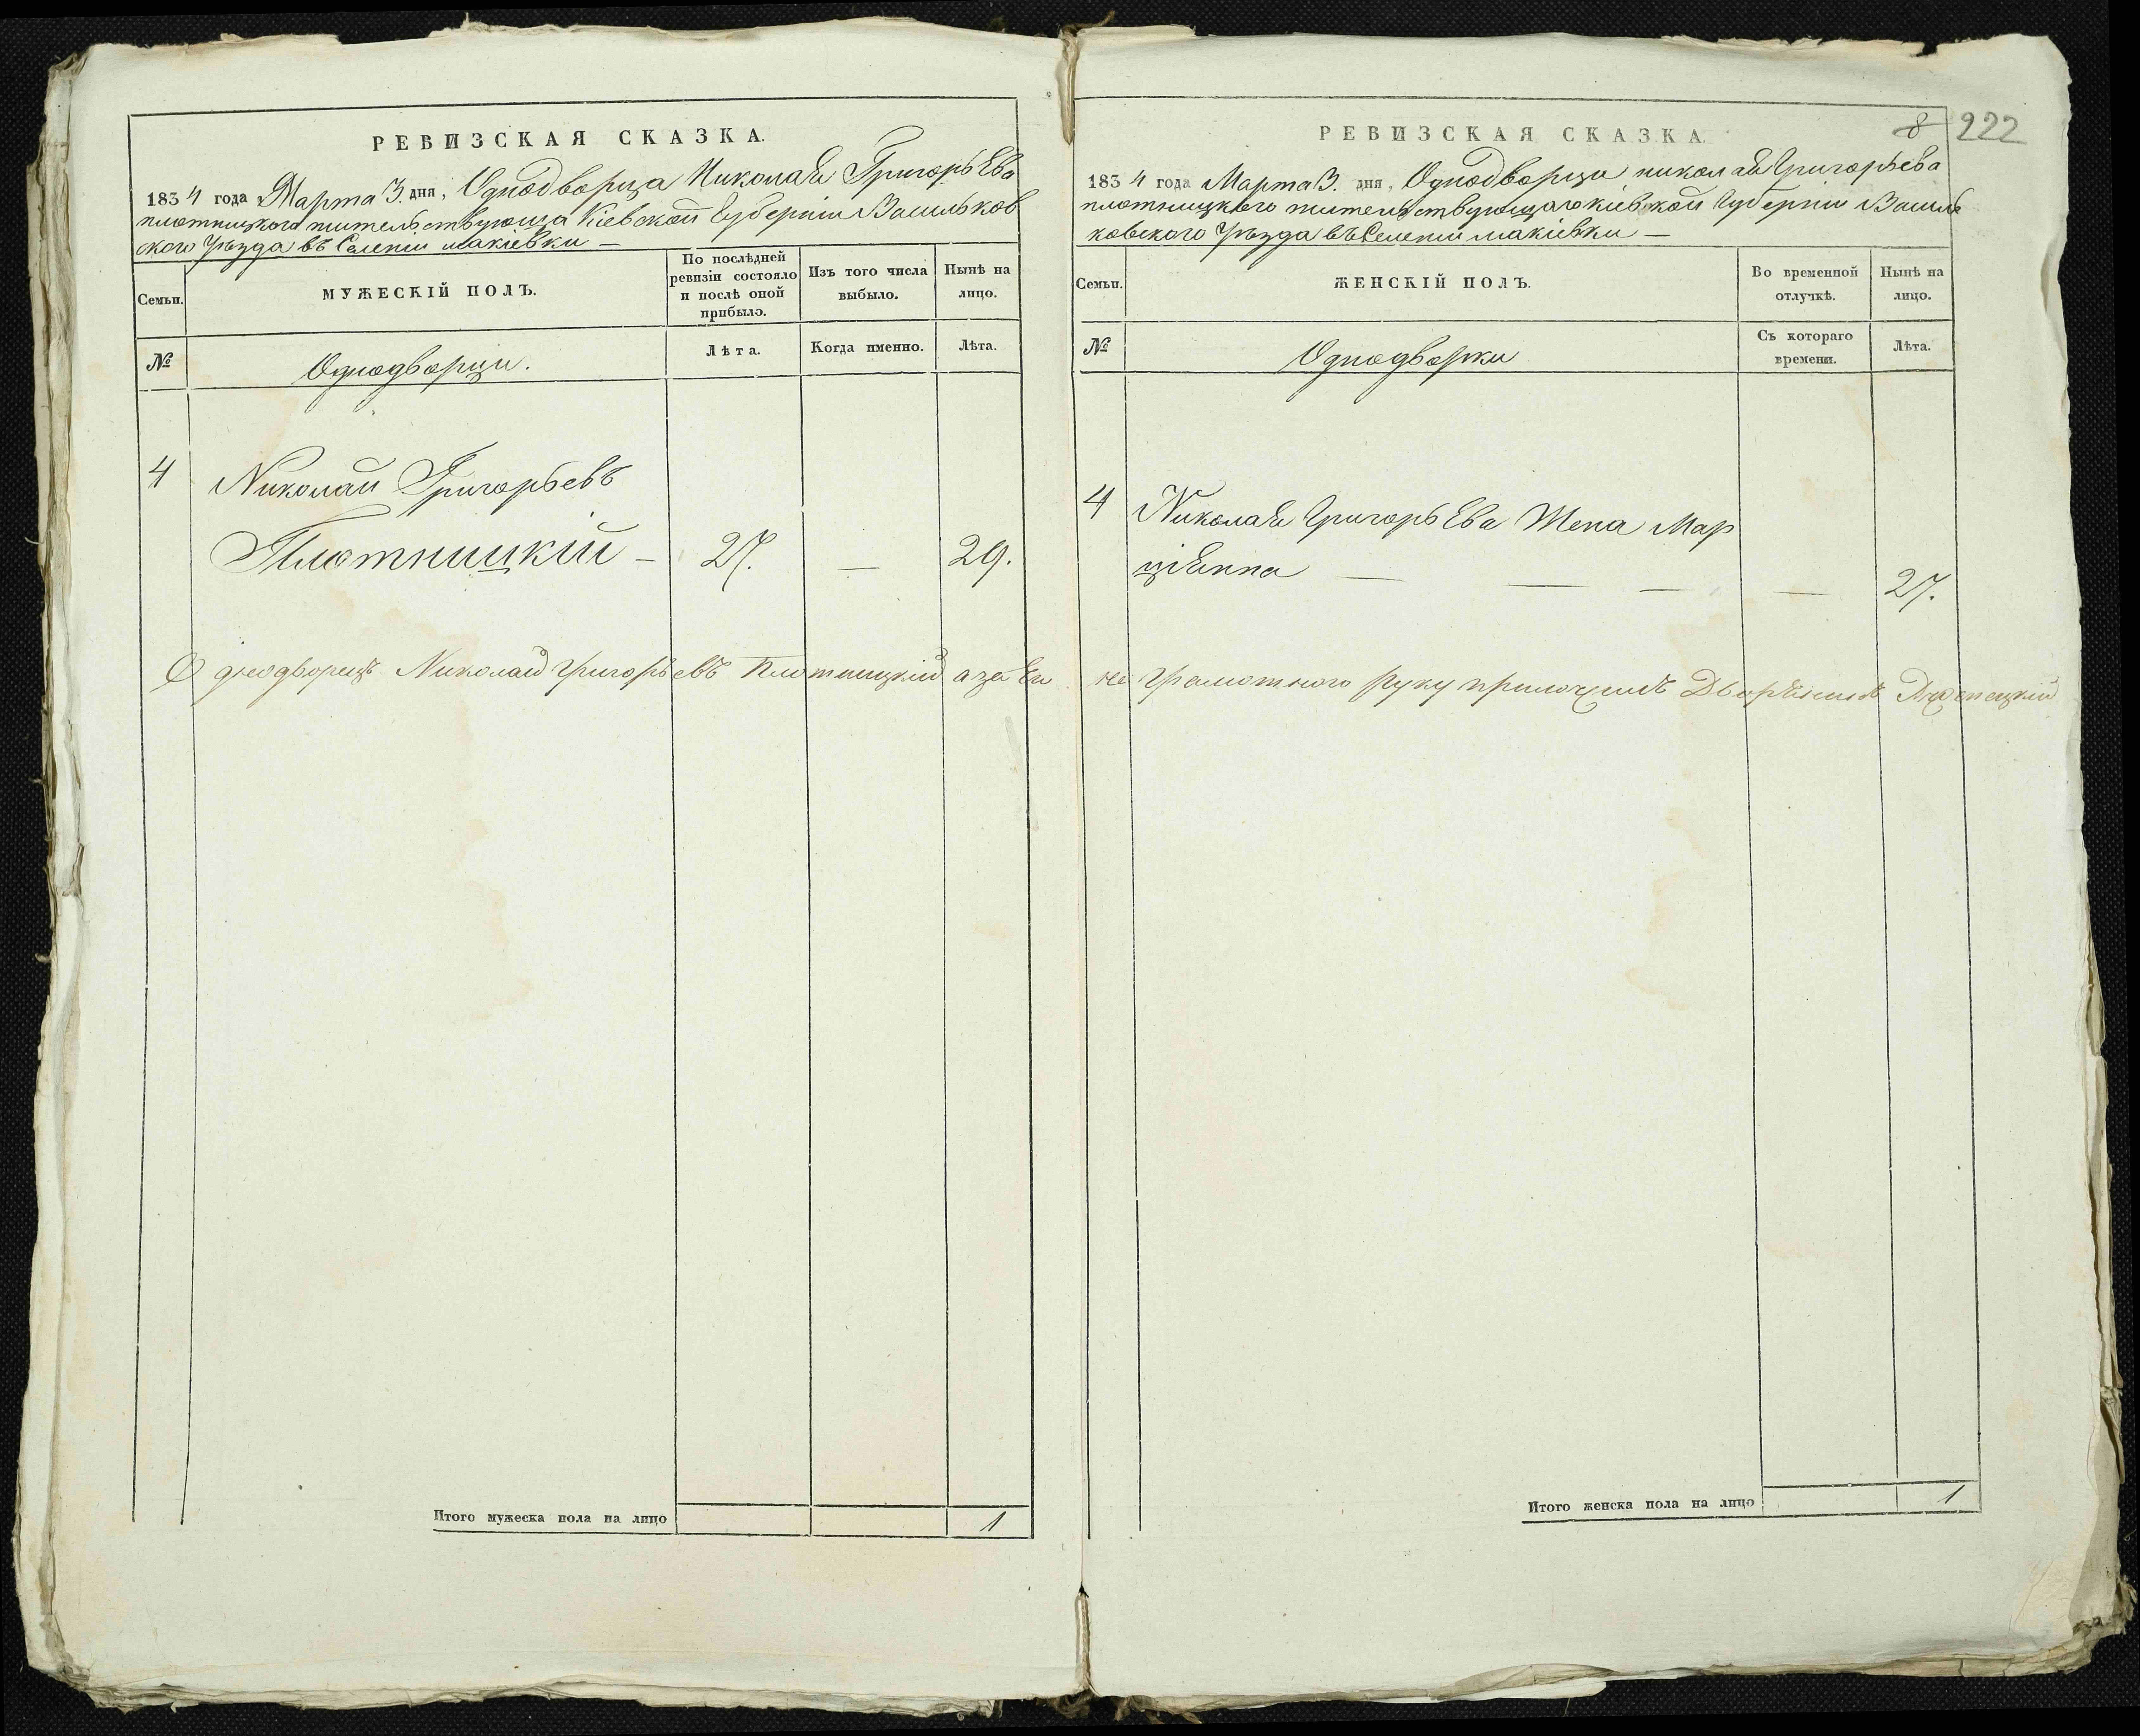 РЕВИЗСКАЯ СКАЗКА.
1834 года Марта 3. дня, Однодворца Николая Григорьева
плотницкого жительствующа Кіевской Губерніи Васильков
ского Уѣзда въ Селеніи макіевки —
Семьи.
МУЖЕСКІЙ ПОЛЪ.
По послѣдней ревизіи состояло и послѣ оной прибыло.
Изъ того числа выбыло.
Нынѣ на лицо.
№
Однодворци.
Лѣта.
Когда именно.
Лѣта.
4 Николай Григорьевъ
Плотницкій — 27. — 29.
Однодворецъ Николай Григорьевъ Плотницкій а за Ег
Итого мужеска пола на лицо 1
8 222
РЕВИЗСКАЯ СКАЗКА.
1834 года Марта 3. дня, Однодворци николая Григорьева
плотницкого жительствующаго кіевской Губерніи Василь
ковского Уѣзда въ Селеніи макіевки —
Семьи.
ЖЕНСКІЙ ПОЛЪ.
Во временной отлучкѣ.
Нынѣ на лицо.
№
Однодворки
Съ котораго времени.
Лѣта.
4 Николая Григорьева Жена Мар
ціянна — — — — 27.
не Грамотного руку приложилъ Дворянинъ
Итого женска пола на лицо 1